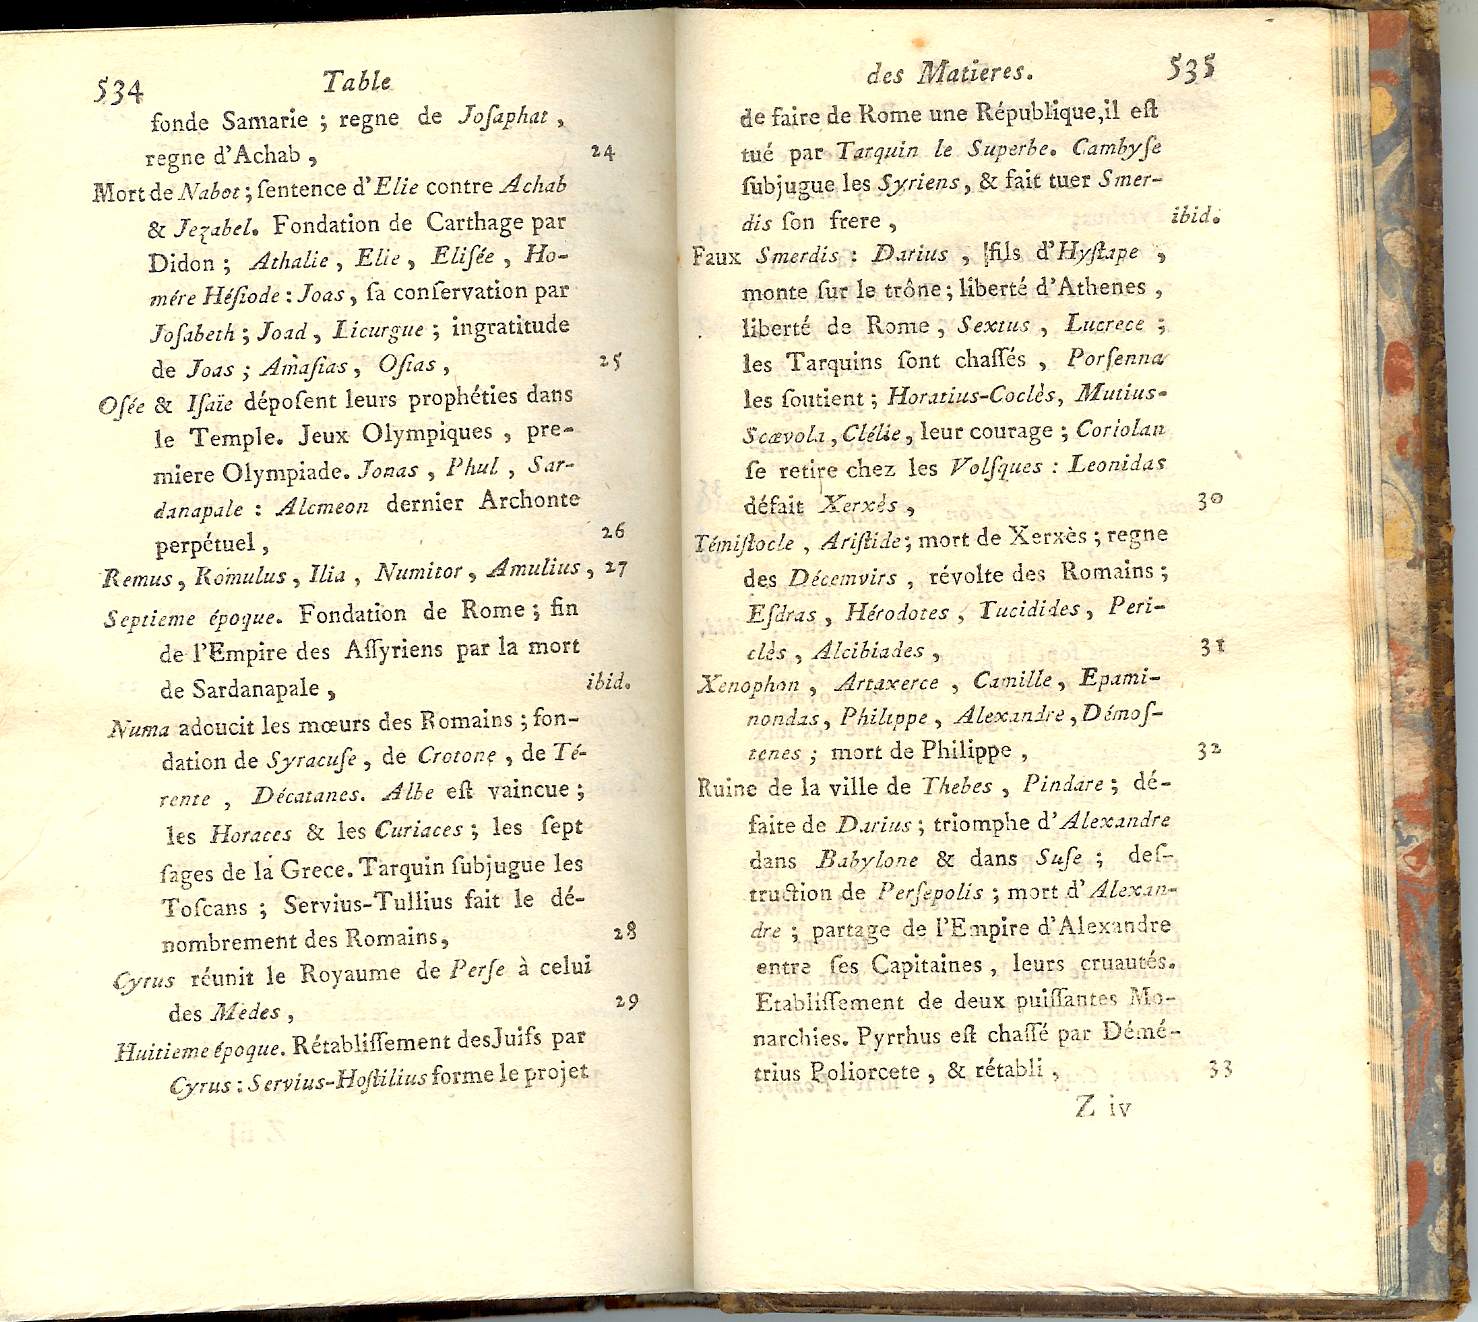 534 Table
fonde Samarie ; regne de Joſaphat ,
regne d'Achab , 24
Mort de Nabot ; ſentence d'Elie contre Achab
& Jezabel. Fondation de Carthage par
Didon ; Athalie , Elie , Eliſée , Ho-
mére Héſiode : Joas , ſa conſervation par
Joſabeth ; Joad , Licurgue ; ingratitude
de Joas ; Amaſias , Oſias , 25
Oſée & Iſaïe dépoſent leurs prophéties dans
le Temple. Jeux Olympiques , pre-
miere Olympiade. Jonas , Phul , Sar-
danapale : Alcmeon dernier Archonte
perpétuel , 26
Remus , Romulus , Ilia , Numitor , Amulius , 27
Septieme époque. Fondation de Rome ; fin
de l'Empire des Aſſyriens par la mort
de Sardanapale , ibid.
Numa adoucit les mœurs des Romains ; fon-
dation de Syracuſe , de Crotone , de Té-
rente , Décatanes. Albe eſt vaincue ;
les Horaces & les Curiaces ; les ſept
ſages de la Grece. Tarquin ſubjugue les
Toſcans ; Servius-Tullius fait le dé-
nombrement des Romains , 28
Cyrus réunit le Royaume de Perſe à celui
des Medes , 29
Huitieme époque. Rétabliſſement des Juifs par
Cyrus : Servius-Hoſtilius forme le projet
des Matieres. 535
de faire de Rome une République, il eſt
tué par Tarquin le Superbe. Cambyſe
ſubjugue les Syriens , & fait tuer Smer-
dis ſon frere , ibid.
Faux Smerdis : Darius , fils d'Hyſtape ,
monte ſur le trône ; liberté d'Athenes ,
liberté de Rome , Sextus , Lucrece ;
les Tarquins ſont chaſſés , Porſenna
les ſoutient ; Horatius-Coclès, Mutius-
Scævola , Clélie , leur courage ; Coriolan
ſe retire chez les Volſques : Leonidas
défait Xerxès , 30
Témiſtocle , Ariſtide ; mort de Xerxès ; regne
des Décemvirs , révolte des Romains ;
Eſdras , Hérodotes , Tucidides , Peri-
clès , Alcibiades , 31
Xenophon , Artaxerce , Camille , Epami-
nondas , Philippe , Alexandre , Démoſ-
tenes ; mort de Philippe , 32
Ruine de la ville de Thebes , Pindare ; dé-
faite de Darius ; triomphe d'Alexandre
dans Babylone & dans Suſe ; deſ-
truction de Perſepolis ; mort d'Alexan-
dre ; partage de l'Empire d'Alexandre
entre ſes Capitaines , leurs cruautés.
Etabliſſement de deux puiſſantes Mo-
narchies. Pyrrhus eſt chaſſé par Démé-
trius Poliorcete , & rétabli , 33
Z iv